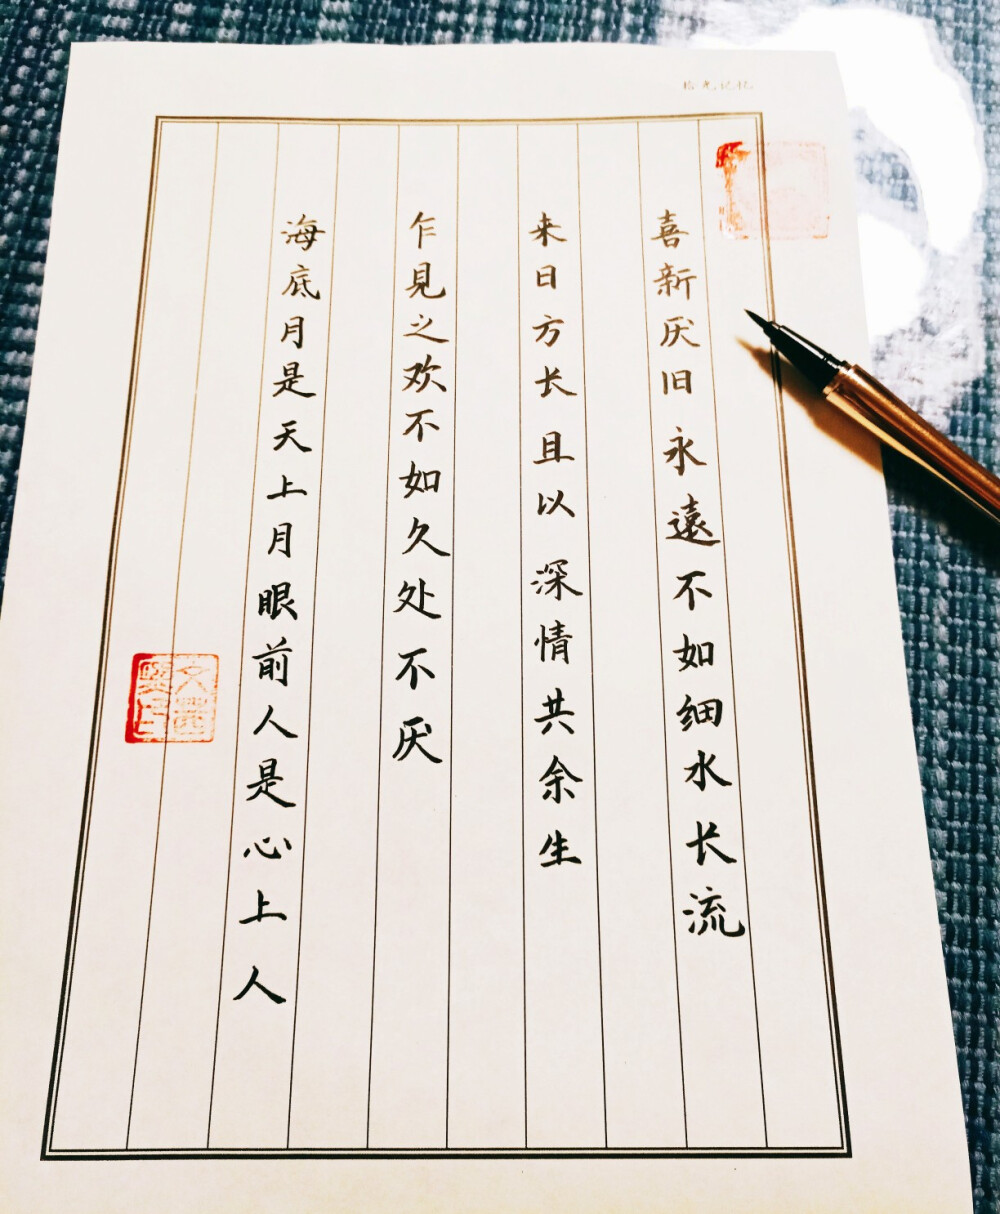 拾光记忆
喜新厌旧永遠不如细水长流
来日方长且以深情共余生
乍見之欢不如久处不厌
海底月是天上月眼前人是心上人